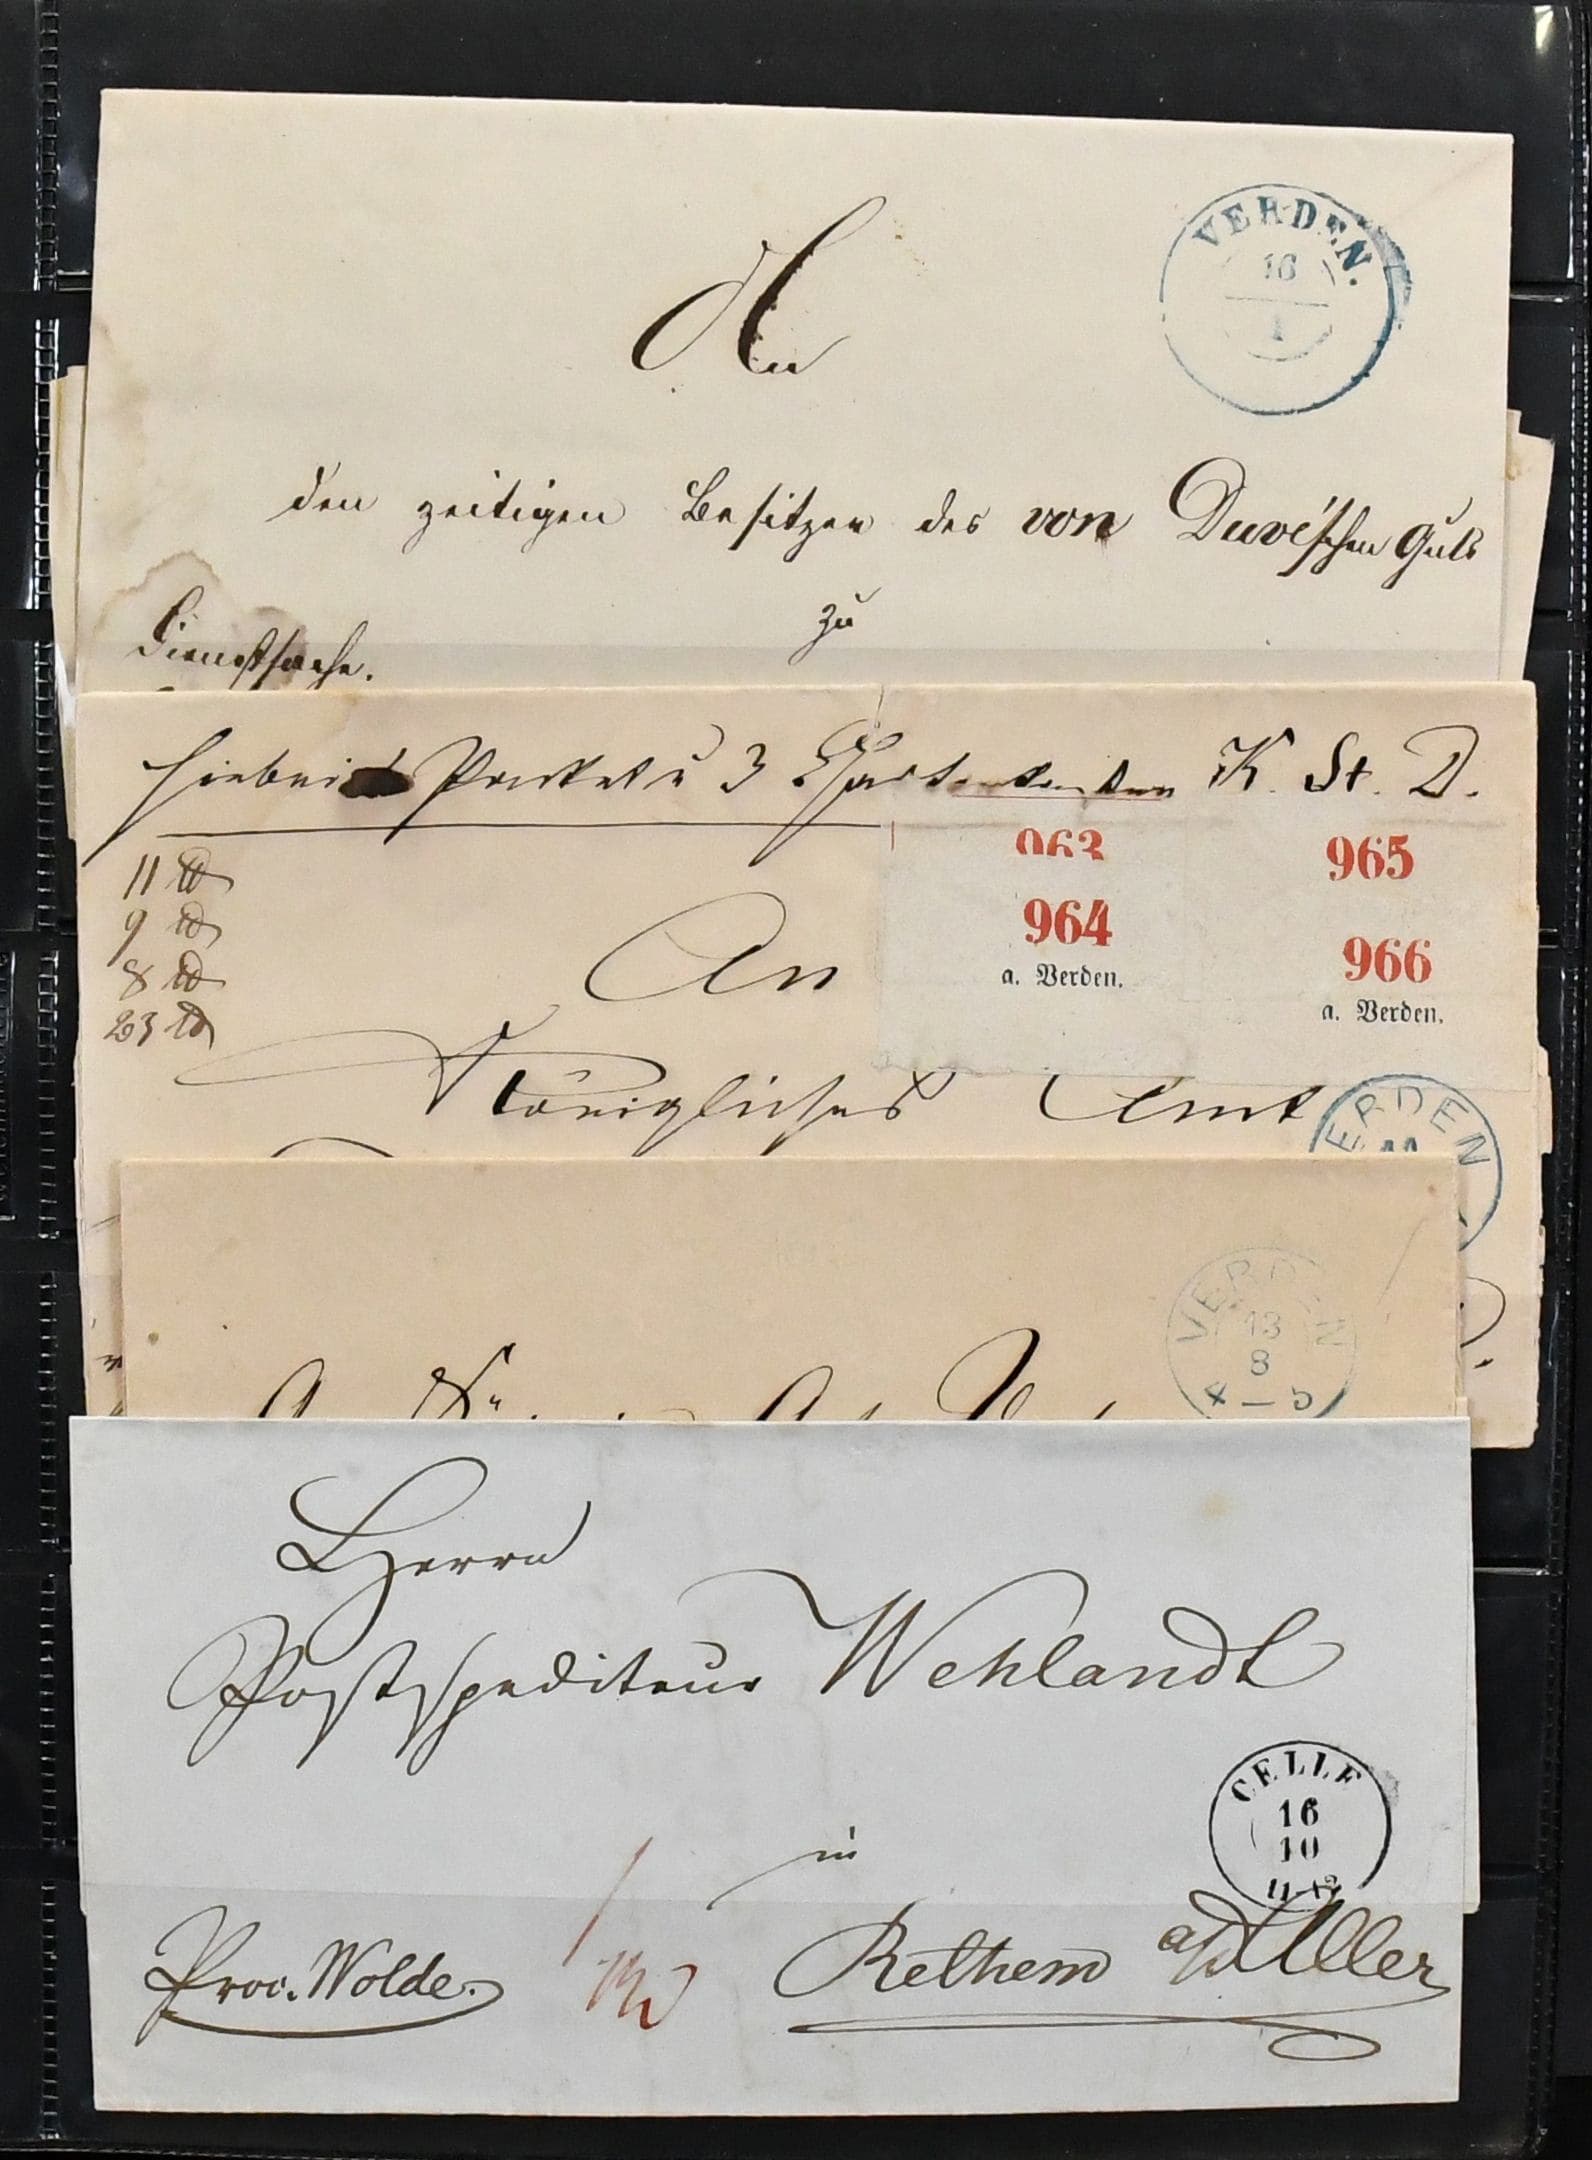 An
VERDEN.
16
1
den zeitigen Besitzer des von Duve'schen Guts
zu
Dienstsache.
Hiebei Packet u 3 K. St. D.
11 ℔
9 ℔
8 ℔
23 ℔
963
964
a. Verden.
965
966
a. Verden.
An
Königliches Amt
ERDEN
VERDEN
13
8
4–5
Herrn
Postspediteur Wehlandt
CELLE
16
10
11–12
in
Prov. Wolde.
Rethem a/d Aller